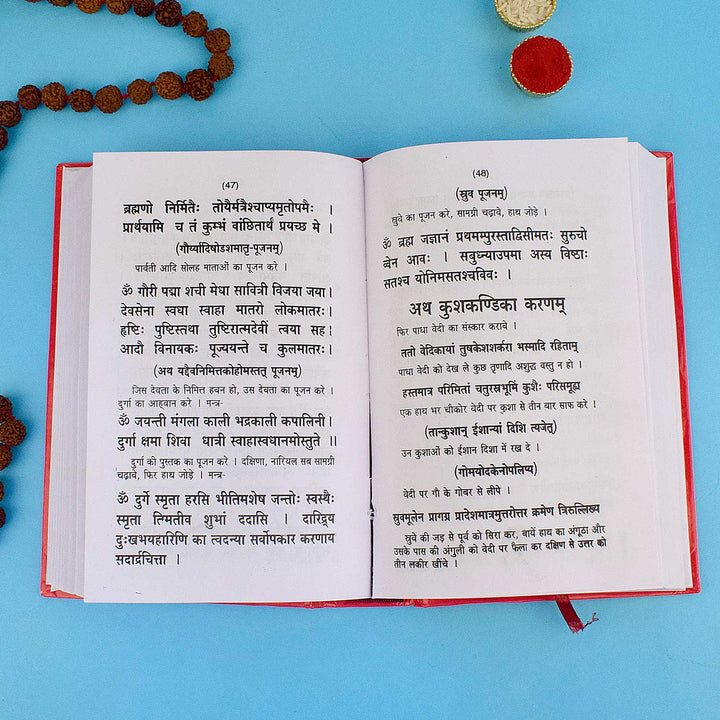 (47)
ब्रह्मणो निर्मितैः तोयैर्मत्रैश्चाप्यमृतोपमैः ।
प्रार्थयामि च तं कुम्भं वांछितार्थं प्रयच्छ मे ।
(गौर्य्यादिषोडशमातृ-पूजनम्)
पार्वती आदि सोलह माताओं का पूजन करे ।
ॐ गौरी पद्मा शची मेधा सावित्री विजया जया।
देवसेना स्वधा स्वाहा मातरो लोकमातरः।
हृष्टिः पुष्टिस्तथा तुष्टिरात्मदेवीं त्वया सह।
आदौ विनायकः पूज्ययन्ते च कुलमातरः।
(अथ यद्दैवनिमित्तकोहोमस्तत् पूजनम्)
जिस देवता के निमित्त हवन हो, उस देवता का पूजन करे ।
दुर्गा का आह्वान करे । मन्त्र-
ॐ जयन्ती मंगला काली भद्रकाली कपालिनी।
दुर्गा क्षमा शिवा धात्री स्वाहास्वधानमोस्तुते ।।
दुर्गा की पुस्तक का पूजन करे । दक्षिणा, नारियल सब सामग्री
चढ़ावे, फिर हाथ जोड़े । मन्त्र-
ॐ दुर्गे स्मृता हरसि भीतिमशेष जन्तोः स्वस्थैः
स्मृता त्मितीव शुभां ददासि । दारिद्र्य
दुःखभयहारिणि का त्वदन्या सर्वोपकार करणाय
सदार्द्रचित्ता ।
(48)
(स्रुव पूजनम्)
स्रुवे का पूजन करे, सामग्री चढ़ावे, हाथ जोड़े ।
ॐ ब्रह्म जज्ञानं प्रथमम्पुरस्ताद्विसीमतः सुरुचो
ब्वेन आवः । सबुध्न्याउपमा अस्य विष्ठाः
सतश्च योनिमसतश्चविवः ।
अथ कुशकण्डिका करणम्
फिर पाधा वेदी का संस्कार करावे ।
ततो वेदिकायां तुषकेशशर्करा भस्मादि रहिताम्
पाधा वेदी को देख ले कुछ तृणादि अशुद्ध वस्तु न हो ।
हस्तमात्र परिमितां चतुरस्रभूमिं कुशैः परिसमूह्य
एक हाथ भर चौकोर वेदी पर कुशा से तीन बार साफ करे ।
(तान्कुशान् ईशान्यां दिशि त्यजेत्)
उन कुशाओं को ईशान दिशा में रख दे ।
(गोमयोदकेनोपलिप्य)
वेदी पर गौ के गोबर से लीपे ।
स्रुवमूलेन प्रागग्र प्रादेशमात्रमुत्तरोत्तर क्रमेण त्रिरुल्लिख्य
स्रुवे की जड़ से पूर्व को सिरा कर, बायें हाथ का अंगूठा और
उसके पास की अंगुली को वेदी पर फैला कर दक्षिण से उत्तर को
तीन लकीर खींचे ।